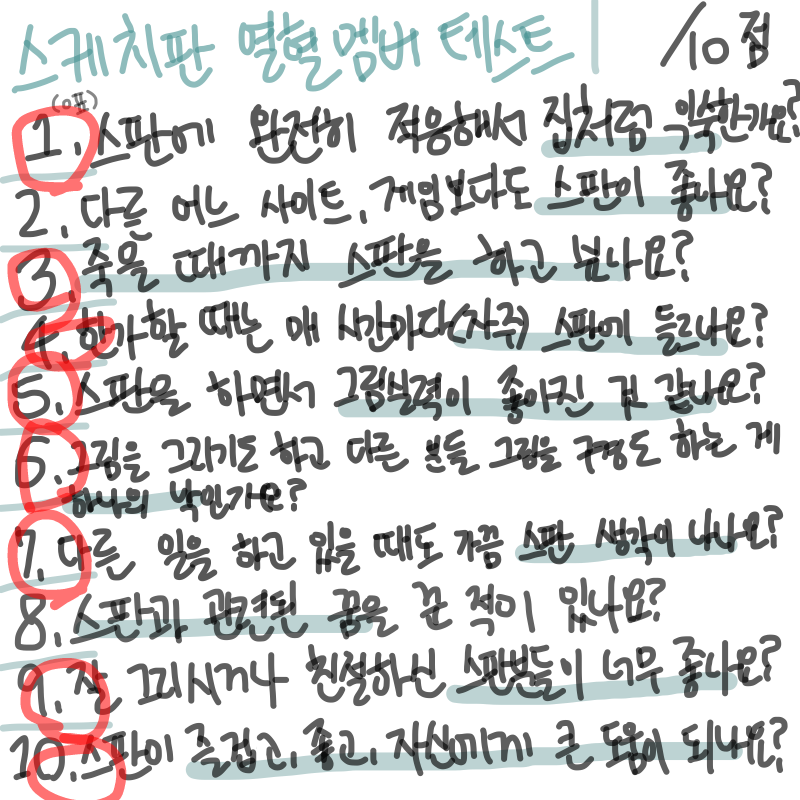 스케치판 열혈멤버 테스트 /10점
(예표)
1. 스판에 완전히 적응해서 집처럼 익숙한가요?
2. 다른 어느 사이트, 게임보다도 스판이 좋나요?
3. 죽을 때까지 스판을 하고 싶나요?
4. 한가할 때는 매 시간마다(자주) 스판에 들르나요?
5. 스판을 하면서 그림실력이 좋아진 것 같나요?
6. 그림을 그리기도 하고 다른 분들 그림을 구경도 하는 게
하나의 낙인가요?
7. 다른 일을 하고 있을 때도 가끔 스판 생각이 나나요?
8. 스판과 관련된 꿈을 꾼 적이 있나요?
9. 잘 그리시거나 친절하신 스판분들이 너무 좋나요?
10. 스판이 즐겁고, 좋고, 자신에게 큰 도움이 되나요?